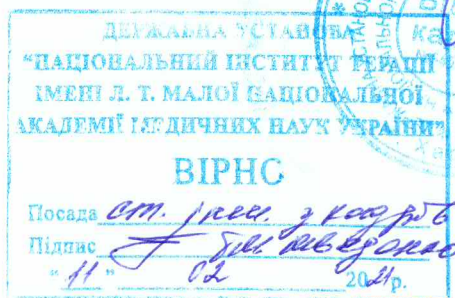 ДЕРЖАВНА УСТАНОВА
"НАЦІОНАЛЬНИЙ ІНСТИТУТ ТЕРАПІЇ
ІМЕНІ Л. Т. МАЛОЇ НАЦІОНАЛЬНОЇ
АКАДЕМІЇ МЕДИЧНИХ НАУК УКРАЇНИ"
ВІРНО
Посада ст. з кадрів
Підпис
"11" 02 2021р.